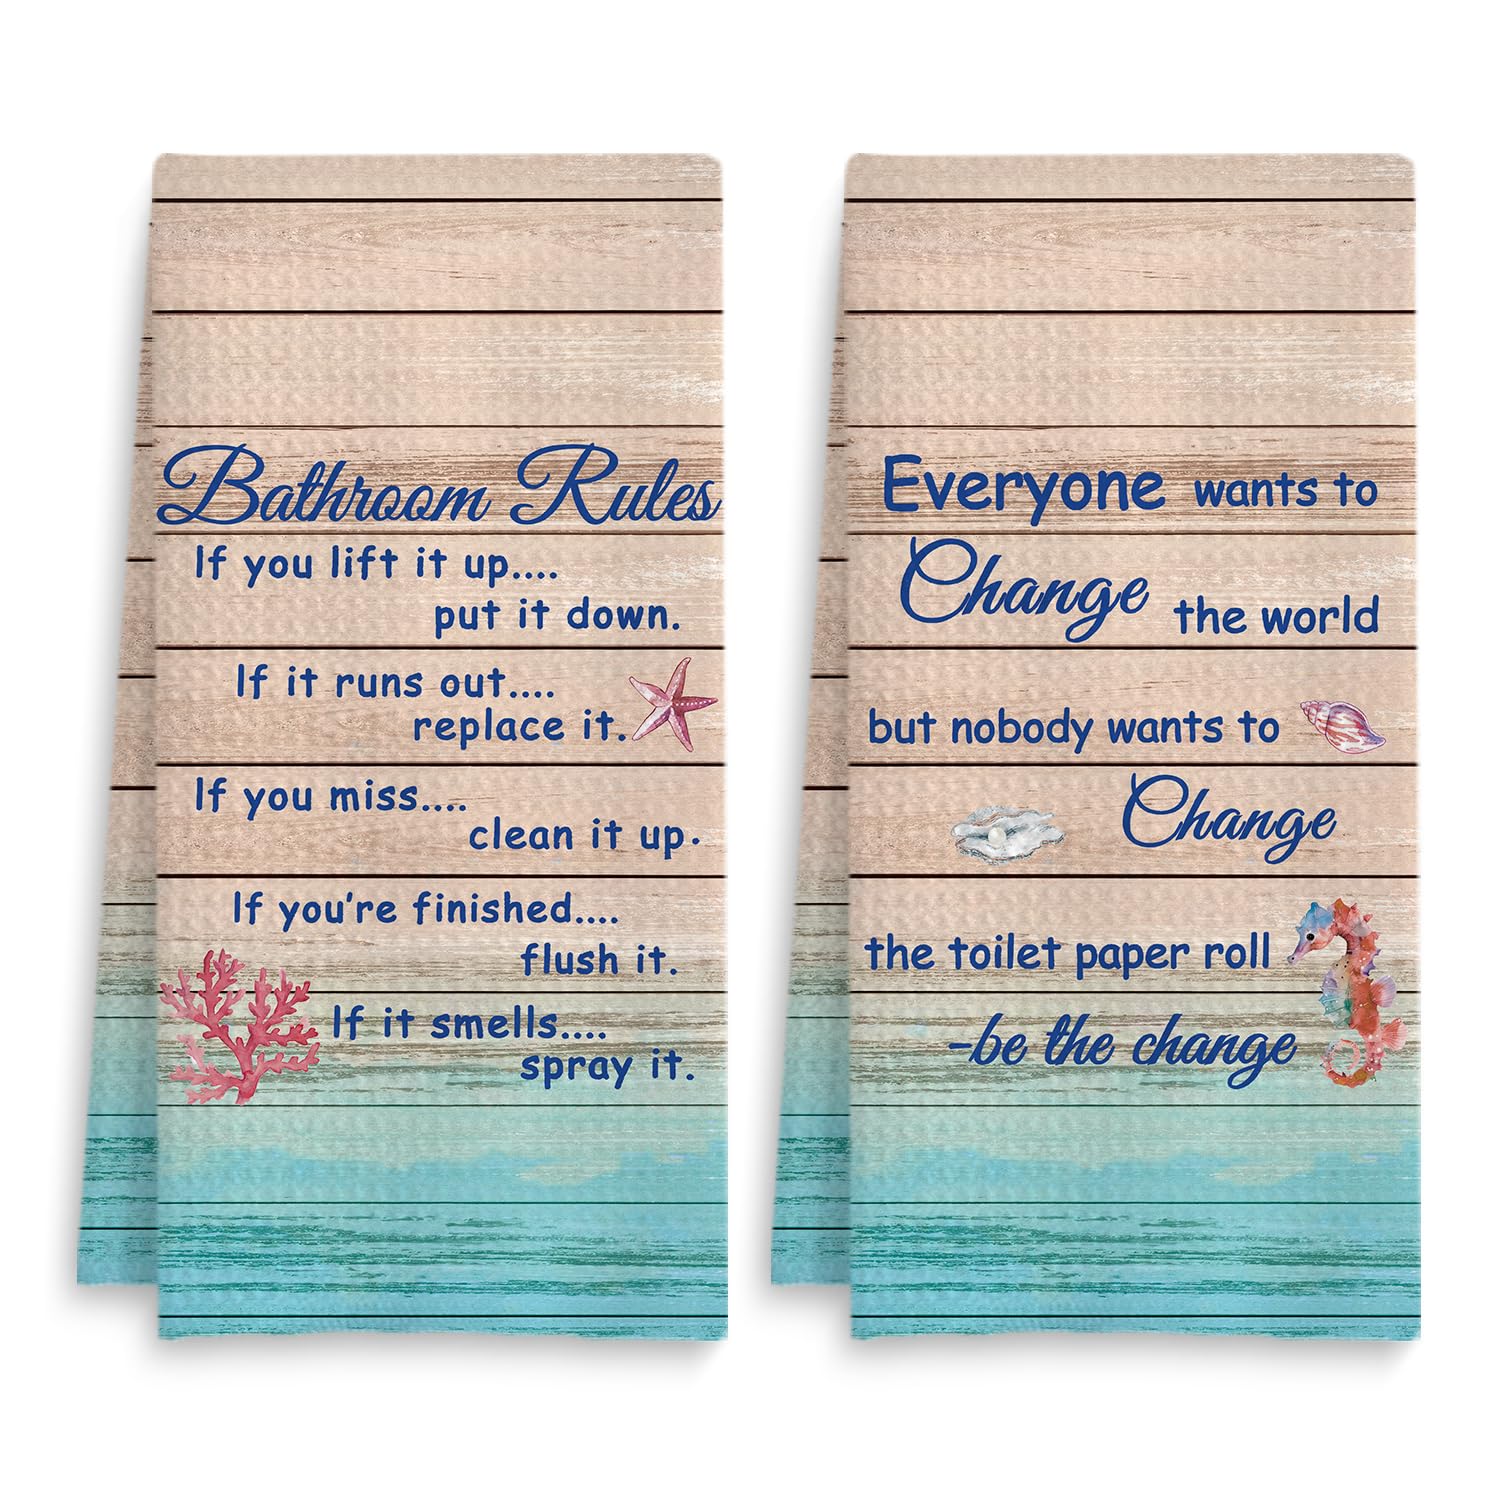 Bathroom Rules
If you lift it up....
put it down.
If it runs out....
replace it.
If you miss....
clean it up.
If you're finished....
flush it.
If it smells....
spray it.
Everyone wants to
Change the world
but nobody wants to
Change
the toilet paper roll
-be the change